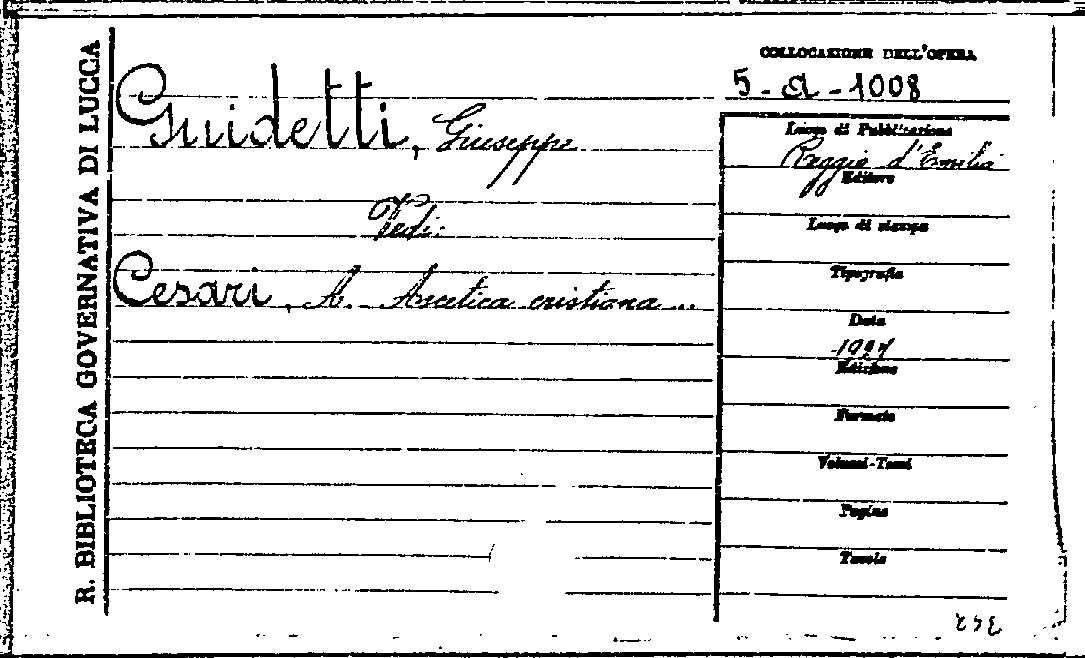 R. BIBLIOTECA GOVERNATIVA DI LUCCA
Guidetti, Giuseppe
Vedi:
Cesari, A. Ascetica cristiana ...
COLLOCAZIONE DELL'OPERA
5-a-1008
Luogo di Pubblicazione
Reggio d'Emilia
Editore
Luogo di stampa
Tipografia
Data
Edizione
Formato
Volumi-Tomi
Pagine
Tavole